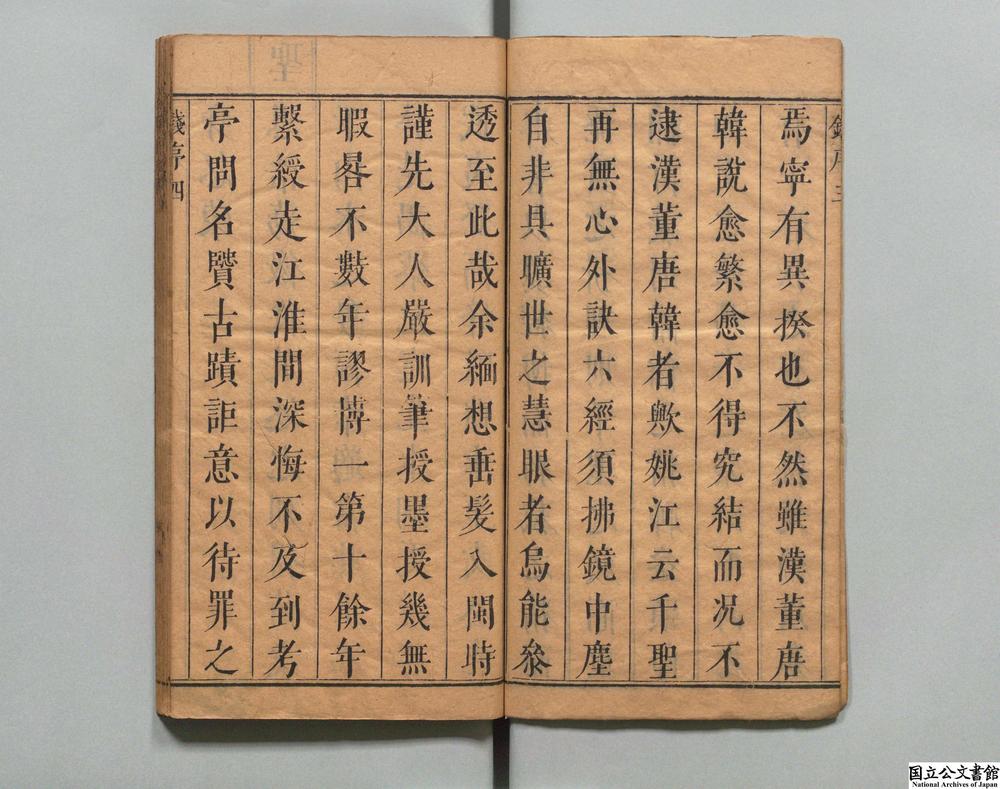 焉寧有異揆也不然雖漢董唐
韓說愈繁愈不得究結而况不
逮漢董唐韓者歟姚江云千聖
再無心外訣六經須拂鏡中塵
自非具曠世之慧眼者烏能叅
透至此哉余緬想垂髮入閩時
謹先大人嚴訓筆授墨授幾無
暇晷不數年謬博一第十餘年
繫綬走江淮間深悔不及到考
亭問名贒古蹟詎意以待罪之
四
国立公文書館
National Archives of Japan